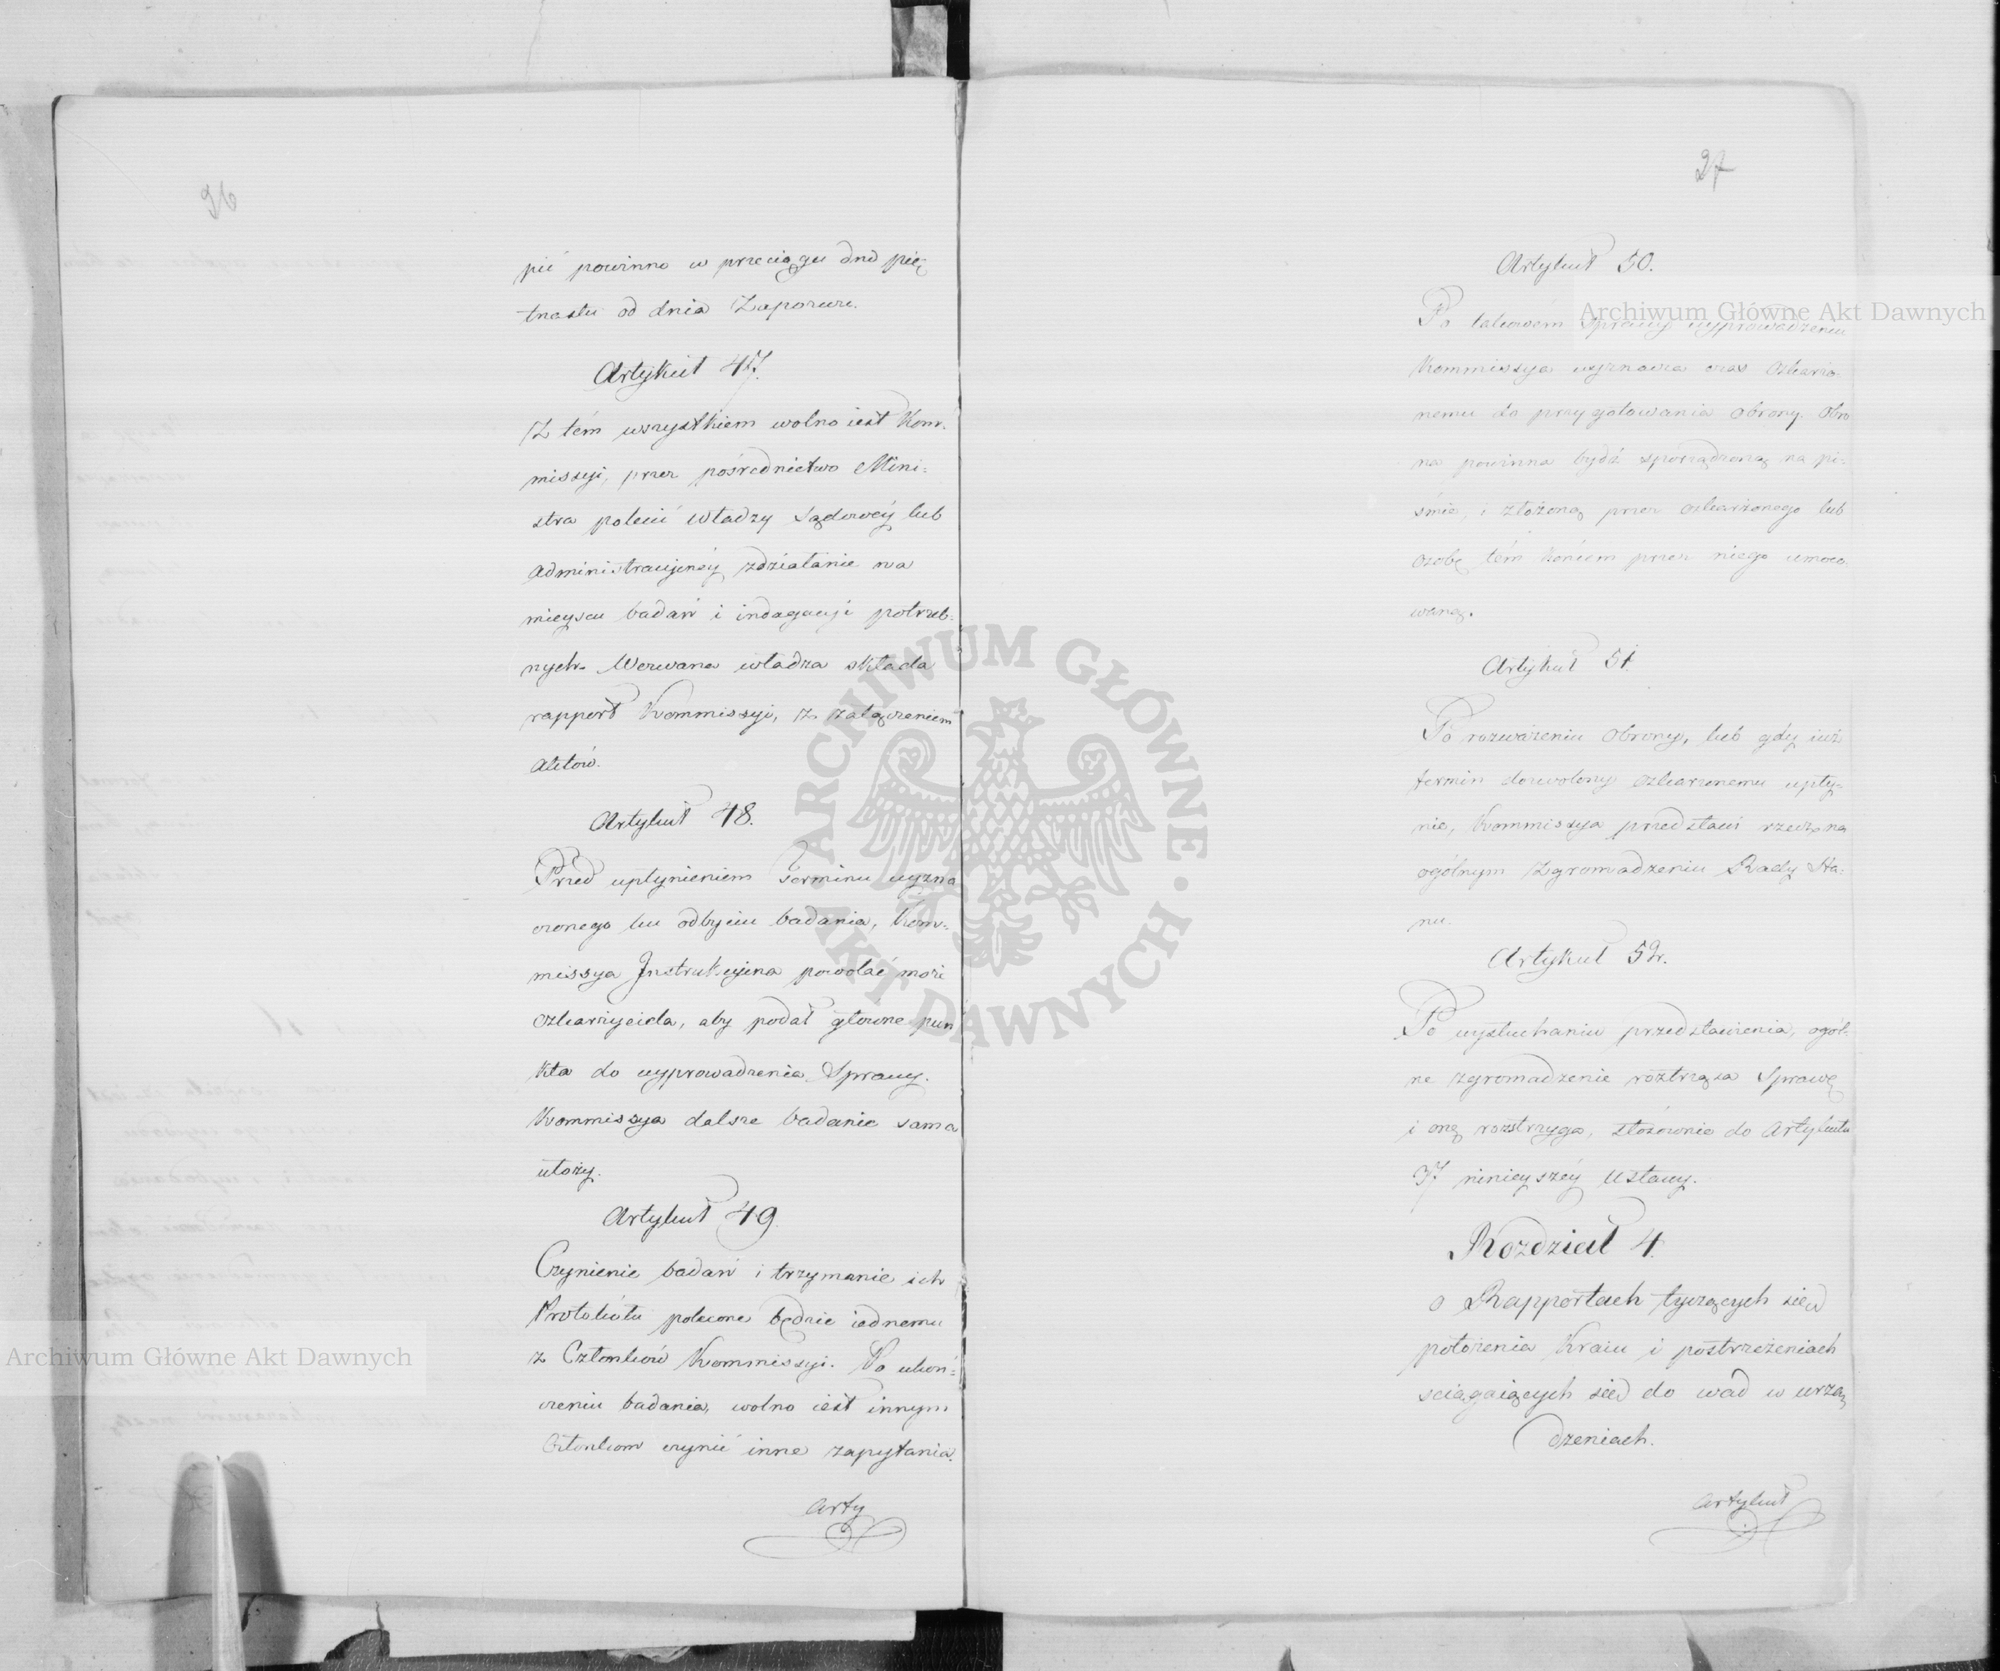 26
pić powinno w przeciągu dnd pię
tnastu od dnia Zapozwu.
Artykuł 47.
Z tém wszystkiem wolno iest Kom:
missyi, przez pośrednictwo Mini:
stra polecić Władzy Sądowéy lub
Administracyinéy zdziałanie na
mieyscu badań i indagacyi potrzeb:
nych. Wezwana władza składa
rapport Kommissyi, z załączeniem
Aktów.
Artykuł 48.
Przed upłynieniem Terminu wyzna
czonego ku odbyciu badania, Kom:
missya Instrukcyina powołać może
Oskarżyciela, aby podał główne pun
kta do wyprowadzenia Sprawy.
Kommissya dalsze badanie sama
ułoży.
Artykuł 49.
Czynienie badań i trzymanie ich
Protokułu polecone będzie iednemu
z Członków Kommissyi. Po ukoń:
czeniu badania, wolno iest innym
Członkom czynić inne zapytania.
Arty
27
Artykuł 50.
Po takowém Sprawy wyprowadzeniu
Kommissya wyznacza czas Oskarżo:
nemu do przygotowania Obrony. Obro
na powinna bydź sporządzoną na pi:
śmie, i złożoną przez oskarżonego lub
osobę tém końcem przez niego umoco
waną.
Artykuł 51.
Po rozważeniu Obrony, lub gdy iuż
termin dozwolony oskarżonemu upły:
nie, Kommissya przedstawi rzeczoną
ogólnym Zgromadzeniu Rady Sta:
nu.
Artykuł 52.
Po wysłuchaniu przedstawienia, ogól:
ne zgromadzenie roztrząsa Sprawę
i onę rozstrzyga, stósownie do Artykułu
37 ninieyszéy Ustawy.
Rozdział 4.
o Rapportach tyczących sięd
położenia Kraiu i postrzeżeniach
sciągaiących sięd do wad w urzą
dzeniach.
Artykuł
Archiwum Główne Akt Dawnych
Archiwum Główne Akt Dawnych
ARCHIWUM GŁÓWNE AKT DAWNYCH